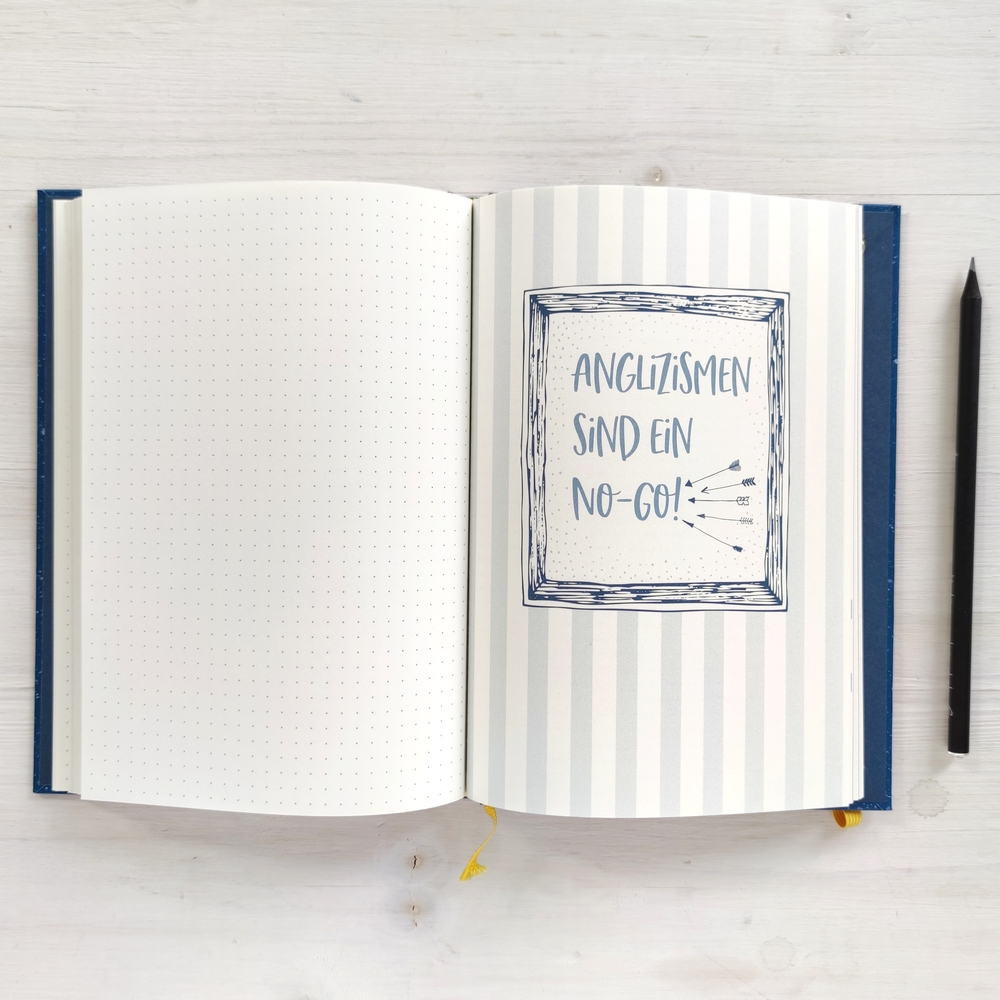 ANGLIZISMEN
SIND EIN
NO-GO!